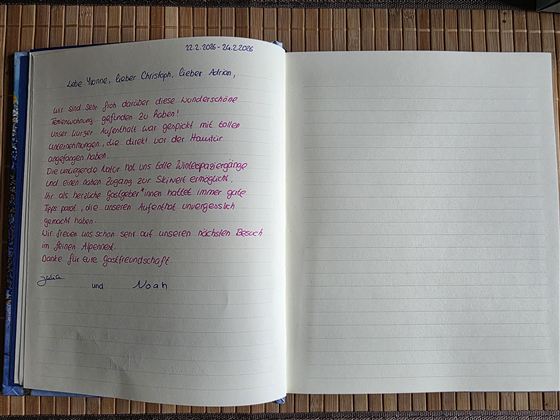 22.2.2026 - 24.2.2026
Liebe Yvonne, lieber Christoph, lieber Adrian,
Wir sind sehr froh darüber diese wunderschöne
Ferienwohnung gefunden zu haben!
Unser kurzer Aufenthalt war gespickt mit tollen
Unternehmungen, die direkt vor der Haustür
angefangen haben.
Die umliegende Natur hat uns tolle Winterspaziergänge
und einen nahen Zugang zur Skiwelt ermöglicht.
Ihr als herzliche Gastgeber*innen hattet immer gute
Tipps parat, die unseren Aufenthalt unvergesslich
gemacht haben.
Wir freuen uns schon sehr auf unseren nächsten Besuch
im feinen Alpennest.
Danke für eure Gastfreundschaft.
und Noah